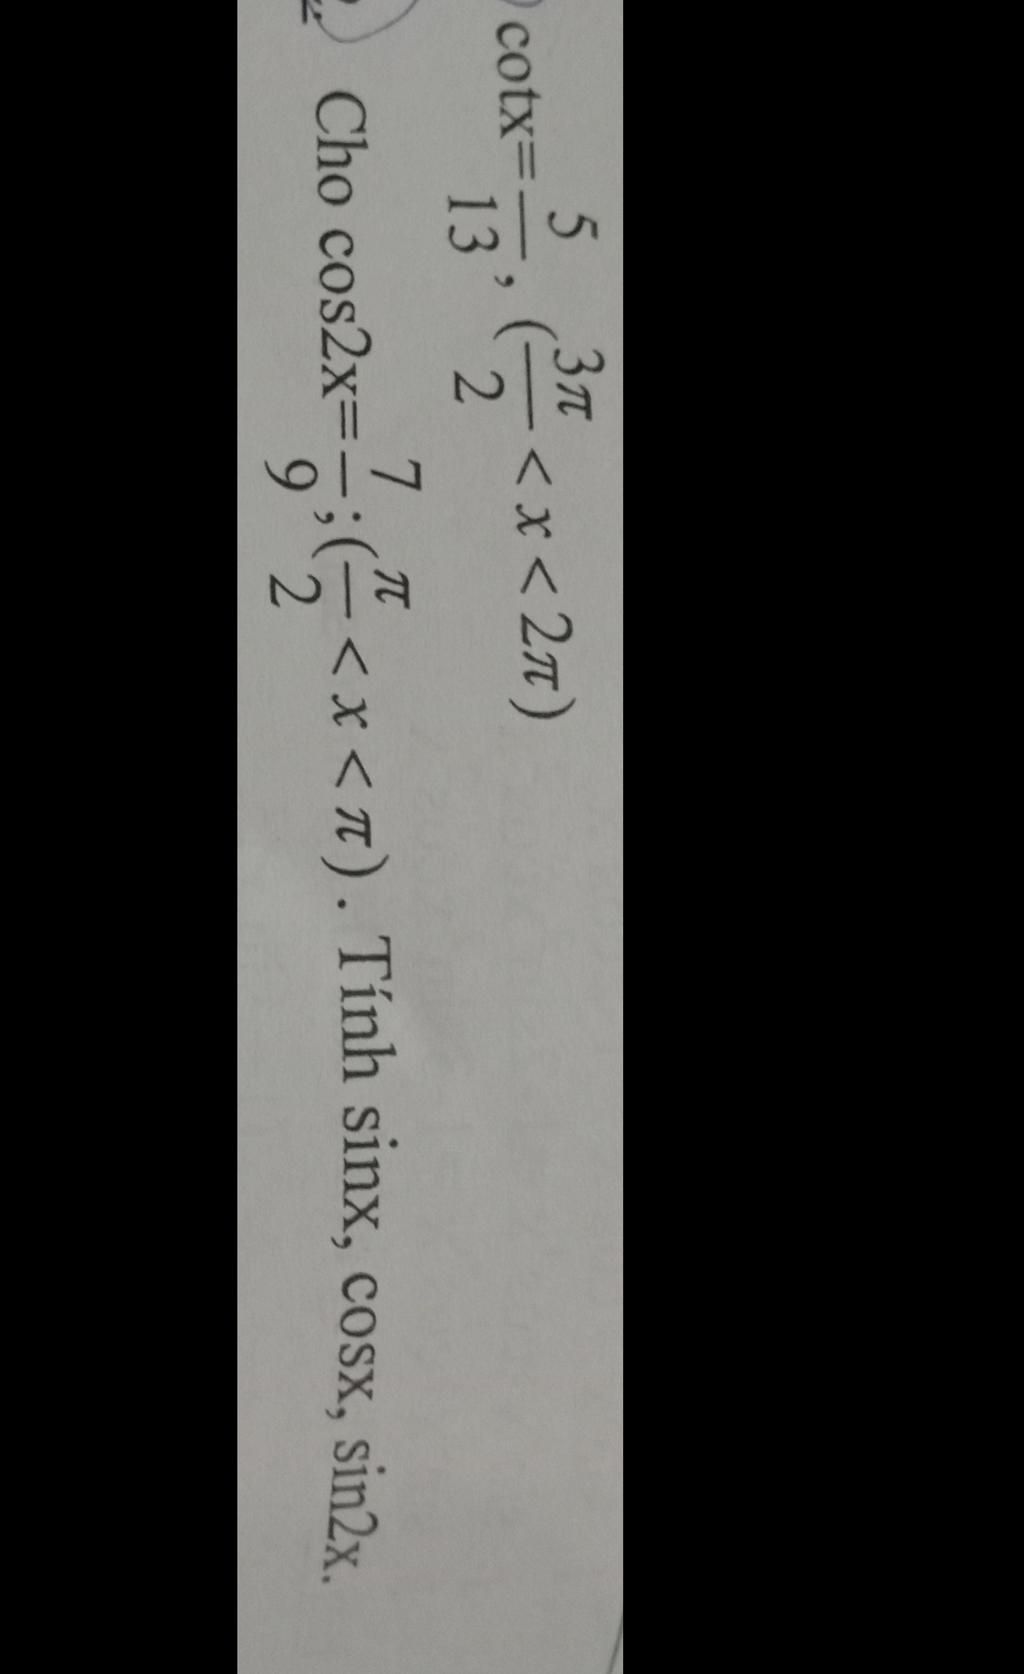 cotx=5/13, (3π/2 < x < 2π)
Cho cos2x=7/9; (π/2 < x < π). Tính sinx, cosx, sin2x.